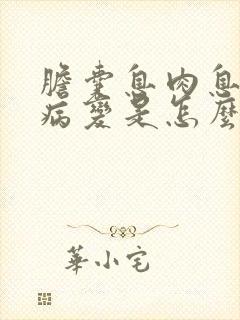 膽囊息肉息
病變是怎麼
華小宅